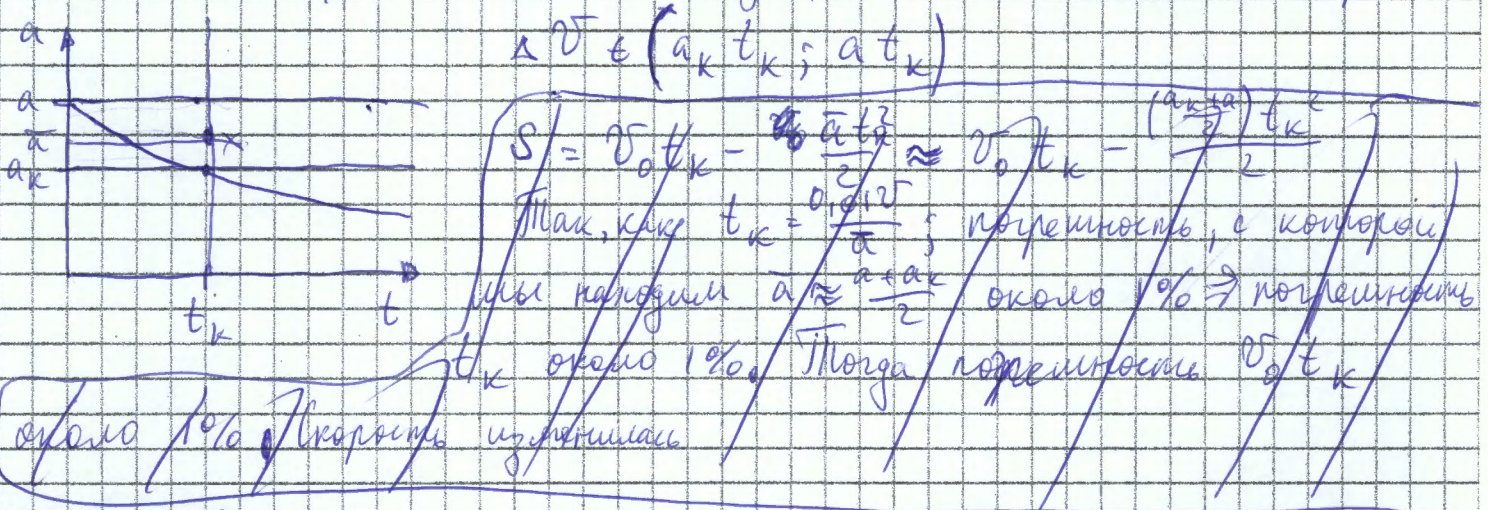 a
a
ā
a_к
t_к
t
Δ V ∈ (a_к t_к ; a t_к)
S = V_0 t_к - ā t_к² / 2 ≈ V_0 t_к - ((a_к + a) / 2) t_к² / 2
Так, как t_к = 0,01 V / ā ; погрешность, с которой
мы находим ā ≈ (a + a_к) / 2 около 1% ⇒ погрешность
t_к около 1%. Тогда погрешность V_0 t_к
около 1%. Скорость изменилась